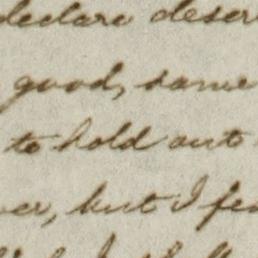 declare deser
good, same
to hold out
er, but I fe